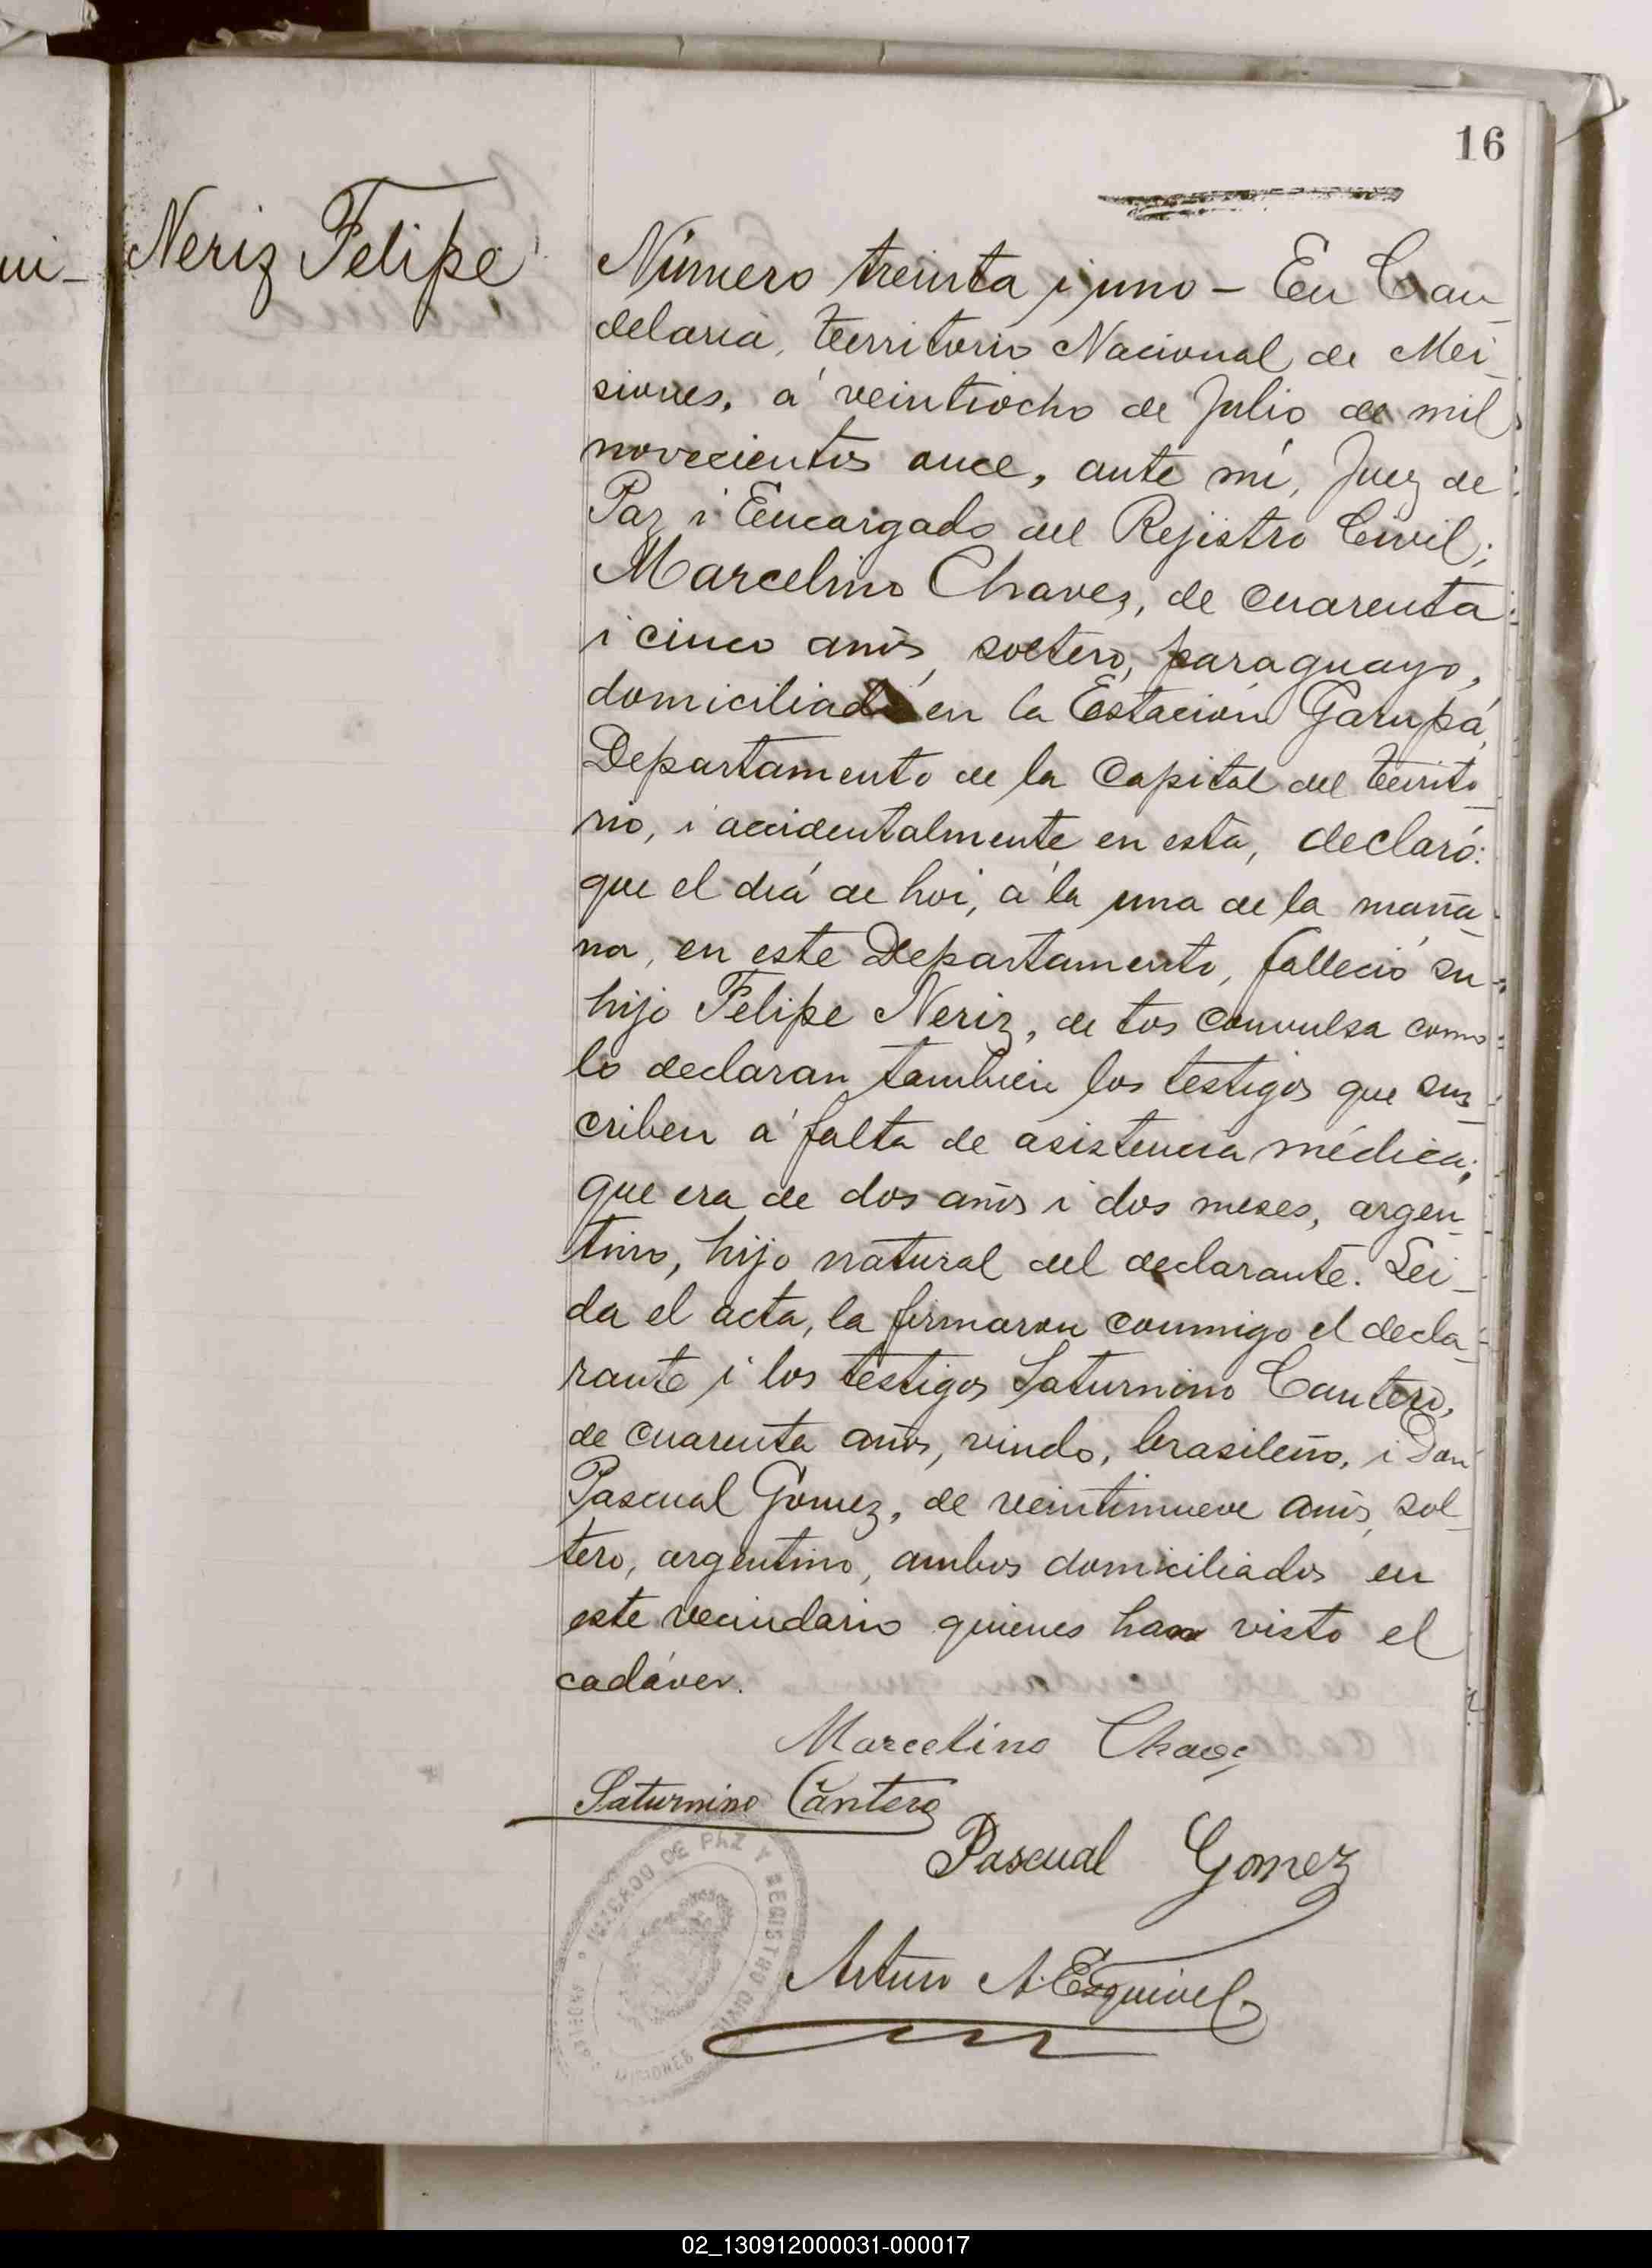 16
Neriz Felipe
Número treinta i uno – En Can-
delaria, territorio Nacional de Mi-
siones, á veintiocho de Julio de mil
novecientos once, ante mí, Juez de
Paz i Encargado del Rejistro Civil;
Marcelino Chavez, de cuarenta
i cinco años, soltero, paraguayo,
domiciliado en la Estación Garupá,
Departamento de la Capital del territo-
rio, i accidentalmente en esta, declaró:
que el día de hoi, á la una de la maña-
na, en este Departamento, falleció su
hijo Felipe Neriz, de tos convulsa como
lo declaran tambien los testigos que sus-
criben á falta de asistencia médica;
que era de dos años i dos meses, argen-
tino, hijo natural del declarante. Lei-
da el acta, la firmaron conmigo el decla-
rante i los testigos Saturnino Cantero,
de cuarenta años, viudo, brasileño, i Don
Pascual Gomez, de veintinueve años, sol-
tero, argentino, ambos domiciliados en
este vecindario quienes han visto el
cadáver.
Marcelino Chavez
Saturnino Cantero
Pascual Gomez
Arturo A. Esquivel
JUZGADO DE PAZ Y REGISTRO CIVIL
MISIONES
02_130912000031-000017